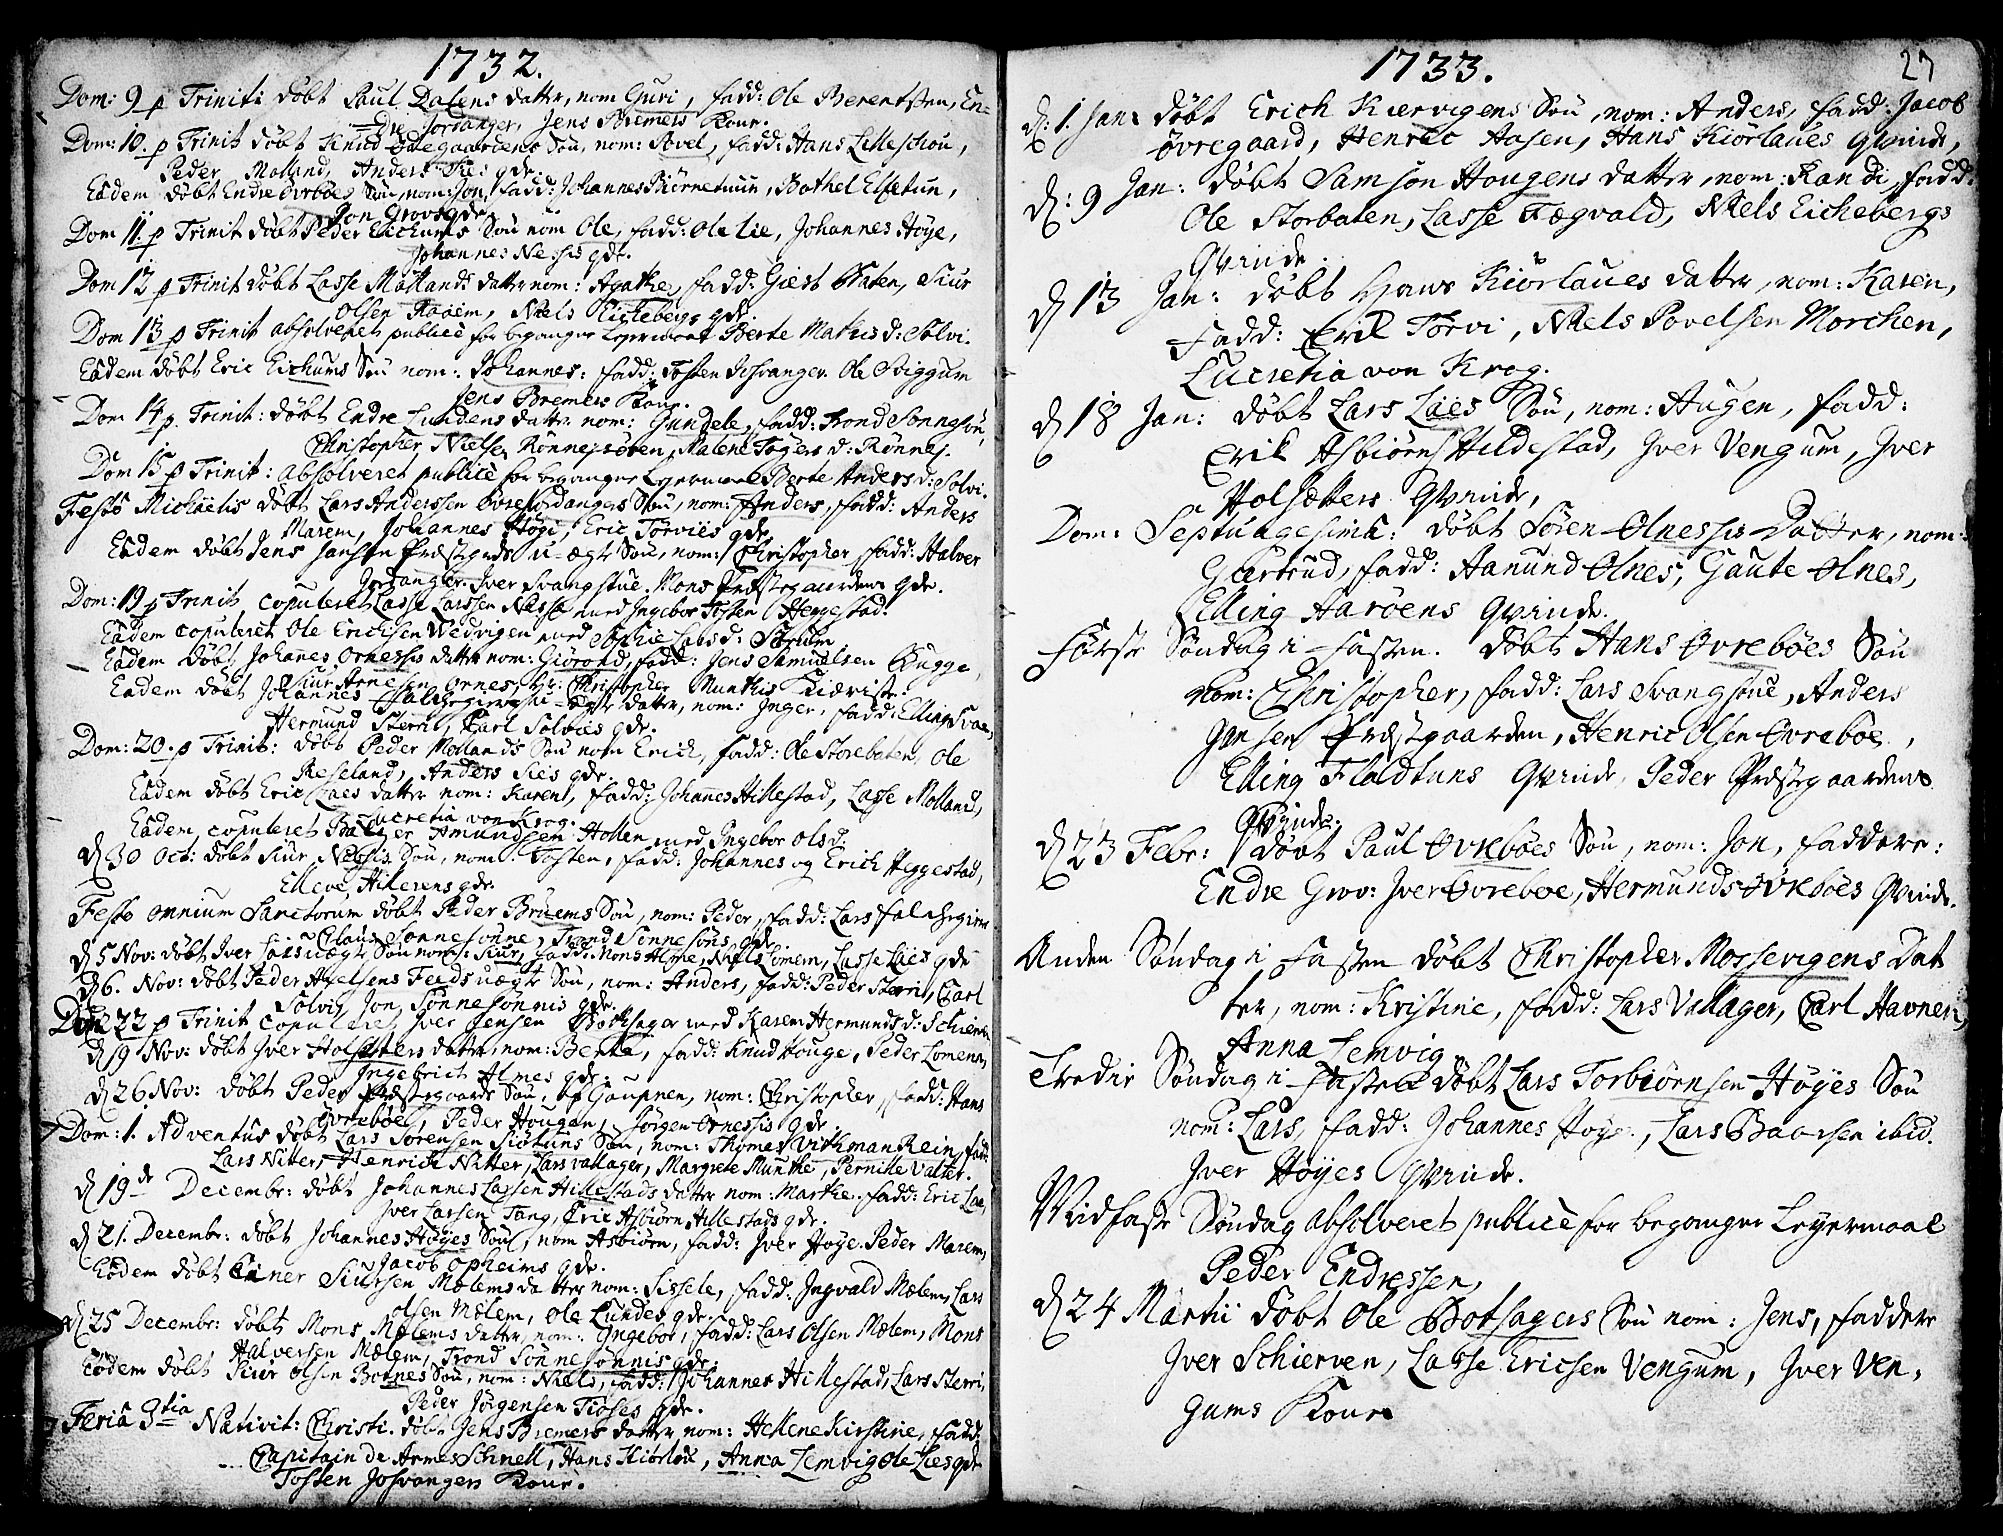 1732.
Dom: 9 p Triniti døbt Paul Dalens datter, nom Guri, fadd: Ole Berentsen, En=
=dre Josvanger, Jens Bremers Kone.
Dom: 10. p Trinit døbt Knud Øregaardens Søn, nom: Povel, fadd: Hans Lilleschou,
Peder Molland, Anders Sies qde.
Eadem døbt Endre Ovrbøes Søn, nom: Jon, fadd: Johannes Biørnetuun, Bothel Elsetun,
Jon Grovs qde.
Dom 11. p Trinit døbt Peder Eichums Søn nom Ole, fadd: Ole Lie, Johannes Høye,
Johannes Nessis qde.
Dom 12 p Trinit døbt Lasse Mollands datter nom: Agathe, fadd: Giest Baten, Siur
Olsen Raaem, Niels Eichebergs qde.
Dom 13 p Trinit absolveret publicè for begangne Leyermaal Berte Mathis d: Solvi.
Eadem døbt Eric Eichums Søn nom: Johannes: fadd: Tosten Josvanger. Ole Sviggum
Jens Bremers Kone.
Dom 14 p. Trinit: døbt Endre Lundens datter nom: Gundele, fadd: Trond Sonnesøn,
Christopher Nielsen Rønneisøren, Malene Tøgers d: Rønnej.
Dom 15 p Trinit: absolveret publicè for begangne Leyermaal Berte Anders d: Solvi.
Festo Michaelis døbt Lars Anderssen Øvre Jordangers Søn, nom: Anders, fadd: Anders
Marem, Johannes Høgi, Eric Torviis qde.
Eadem døbt Jens Jansen Præstgrds u-ægte Søn, nom: Christopher, fadd: Halver
Jordanger. Iver Svangstue. Mons Præstegaardens qde.
Dom: 19 p Trinit, copuleret Lasse Larssen Nesse med Ingebor Tosten Heggestad.
Eadem copuleret Ole Erichsen Wedvigen med Sophie Lars d: Sterum
Eadem døbt Johanes Ornessis datter nom: Giørond, fadd: Jens Samuelsen Bugge,
Siur Arnesen Ornes, Hr: Christopher Munthis Kiæriste.
Eadem døbt Johannes Falchegierens u-ægte datter, nom: Inger, fadd: Elling Svae,
Hermund Sterri, Carl Solvies qde.
Dom: 20. p Trinit: døbt Peder Mollands Søn nom Erich, fadd: Ole Storebaten, Ole
Reseland, Anders Sies qde.
Eadem døbt Eric Laes datter nom: Karen, fadd: Johanes Hillestad, Lasse Molland,
Lucretia von Krog.
Eadem, copuleret Balzer Amundsen Hollen med Ingebor Ols d.
d 30 Oct: døbt Siur Nessis Søn, nom: Tosten, fadd: Johannes og Erich Heggestad,
Elleve Hilerens qde.
Festo omnium Sanctorum døbt Peder Bruems Søn, nom: Peder, fadd: Lars Falchegieren
Claus Sonnesonne, Trond Sonnesøns qde.
d 5 Nov: døbt Iver Lars uægte Søn nom: Siur, fadd: Mons Alme, Niels Lomem, Lasse Lies qde
d 6. Nov: døbt Peder Axelsens Feeds uægte Søn, nom: Anders, fadd: Peder Sterri, Carl
Solvi, Jon Sonnesønnis qde.
Dom 22 p Trinit copuleret Iver Jensen Bothsager med Karen Hermunds d: Schierven
d 19 Nov: døbt Iver Holsæters datter, nom: Berta, fadd: Knud Houge, Peder Lomenn,
Ingebrich Almes qde.
d 26 Nov: døbt Peder Præstegaards Søn, af Gaupnen, nom: Christopher, fadd: Hans
Ovrebøe, Peder Hougan, Jørgen Ornessis qde.
Dom: 1. Adventus døbt Lars Sørensen Siøtuns Søn, nom: Thomas Wirkman Rein, fadd:
Lars Nitter, Henrich Nitter, Lars Vallager, Margrete Munthe, Pernille Valter.
d 19de Decembr: døbt Johannes Larsen Hillestads datter nom: Marthe. fadd: Eric Lae,
Iver Larsen Tang, Eric Asbiørn Hillestads qde.
d 21. Decembr: døbt Johannes Høyes Søn, nom Asbiørn, fadd: Iver Høye. Peder Marem,
Jacob Opheims qde.
Eodem døbt Einer Siursen Mølems datter nom: Sissele, fadd: Ingvald Mølem, Lars
Olsen Mølem, Ole Lundes qde.
d 25 Decembr: døbt Mons Mølems datter, nom: Ingebor, fadd: Lars Olsen Mølem, Mons
Halversen Mølem, Trond Sønnesønnis qde.
Eodem døbt Peder Olsen Bornes Søn, nom: Niels, fadd: Johannes Hillestad, Lars Sterri,
Peder Jørgensen Tioses qde.
Feria 3tia Nativit: Christi. døbt Jens Bremers datter, nom: Hellene Kirstine, fadd:
Capitain de Armes Schnell, Hans Kiørlou, Anna Lemvig Ole Lies qde
Tosten Josvangers Kone.
1733.
27
d: 1. Jan: døbt Erich Kiærvigens Søn, nom: Anders, fadd: Jacob
Øvregaard, Henric Aasen, Hans Kiorlaues Qvinde,
d: 9 Jan: døbt Samson Hougens datter, nom: Randi, fadd:
Ole Storbaten, Lasse Fægvald, Niels Eichebergs
Qvinde.
d 13 Jan: døbt Hans Kiørlaues datter, nom: Karen,
Fadd: Erik Torvi, Niels Povelsen Morchen,
Lucretia von Krog.
d 18 Jan: døbt Lars Lies Søn, nom: Augen, fadd:
Erik Asbiørns Hildestad, Iver Vengum, Iver
Holsæters Qvinde,
Dom: Septuagesima: døbt Søren Olnessis Datter, nom:
Giertrud, fadd: Aanund Olnes, Gaute Olnes,
Elling Aarøens Qvinde.
Første Søndag i Fasten. døbt Hans Ovrebøes Søn
nom: Christopher, fadd: Lars Svangstue, Anders
Jansen Præstgaarden, Henric Olsen Ovrebøe,
Elling Fladtuns Qvinde, Peder Præstgaardens
Qvinde.
d 23 Febr: døbt Paul Ovrebøes Søn, nom: Jon, faddere:
Endre Grov: Iver Ovreboe, Hermunds Ovrebøes Qvinde.
Anden Søndag i Fasten døbt Christopher Mossevigens Dat
ter, nom: Kristine, fadd: Lars Vallager, Carl Havnen,
Anna Lemvig
Tredie Søndag i Fasten døbt Lars Torbiørnsen Høyes Søn
nom: Lars, fadd: Johannes Høye, Lars Baarsen ibid.
Iver Høyes Qvinde.
Midfaste Søndag absolveret publicè for begangne Leyermaal
Peder Endressen,
d 24 Martii døbt Ole Botsagers Søn nom: Jens, faddere
Iver Schierven, Lasse Ericsen Vengum, Iver Ven,
gums Kone